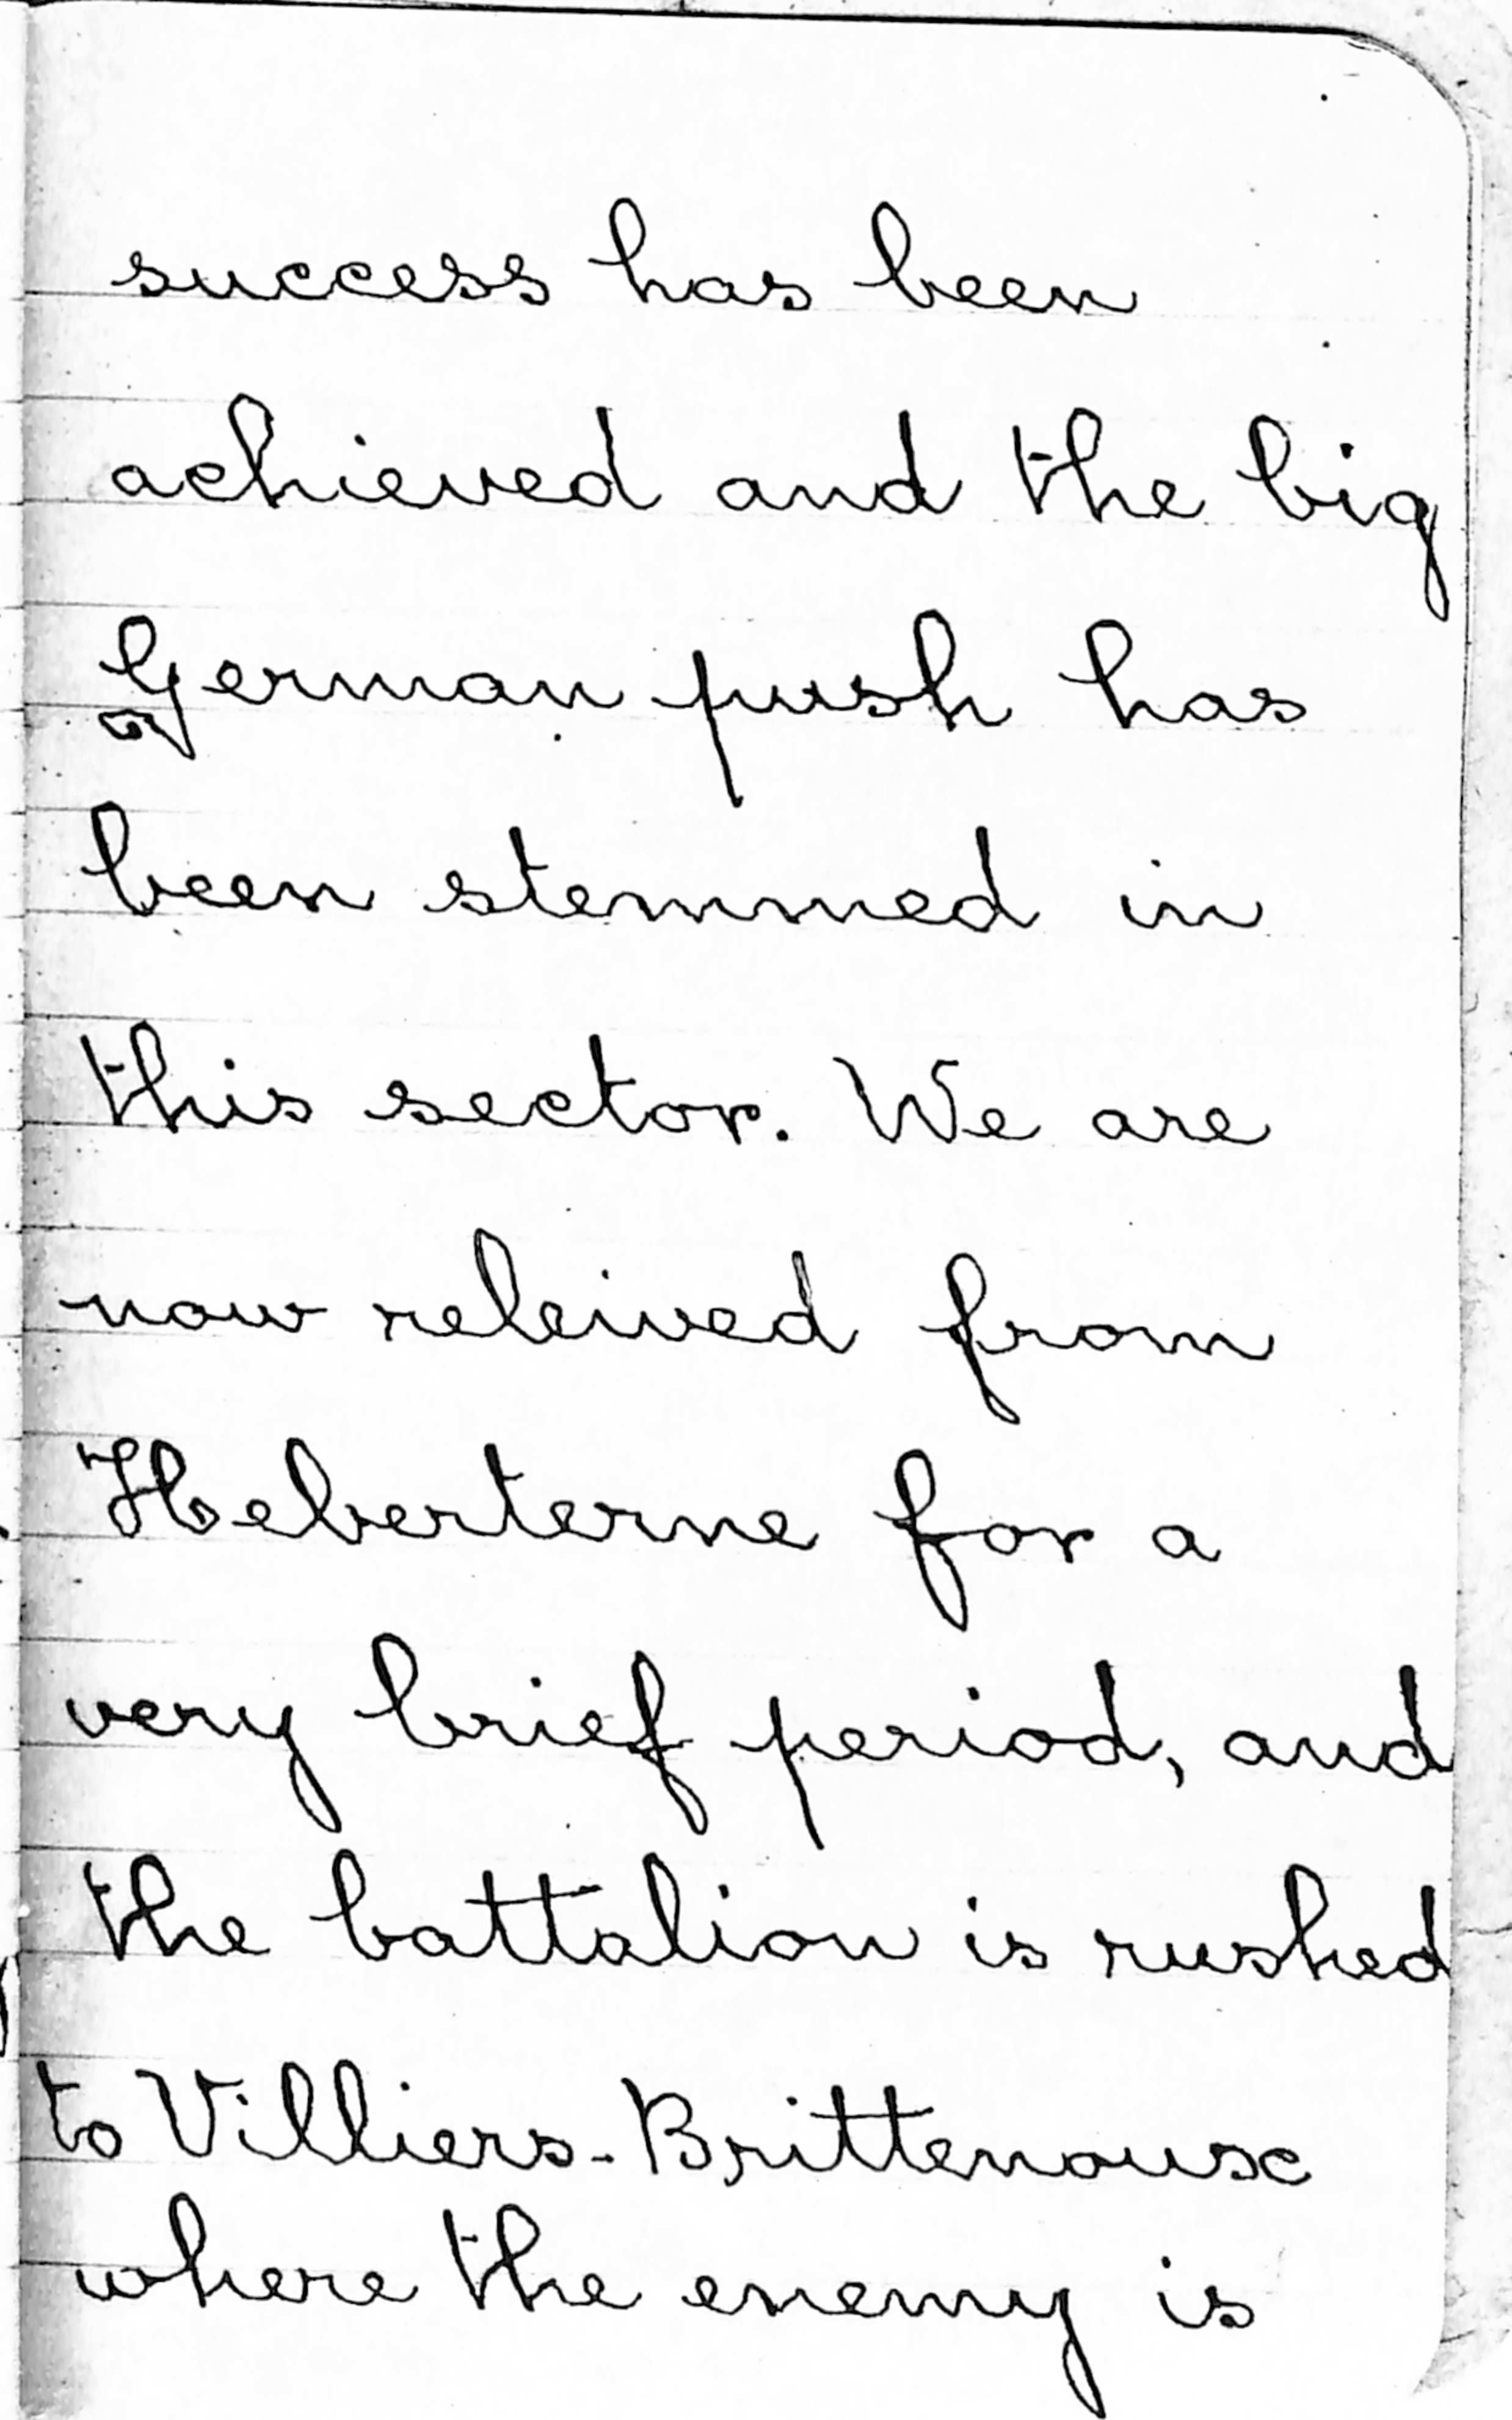 success has been
achieved and the big
German push has
been stemmed in
this sector. We are
now releived from
Heberterne for a
very brief period, and
the battalion is rushed
to Villiers-Brittenouse
where the enemy is